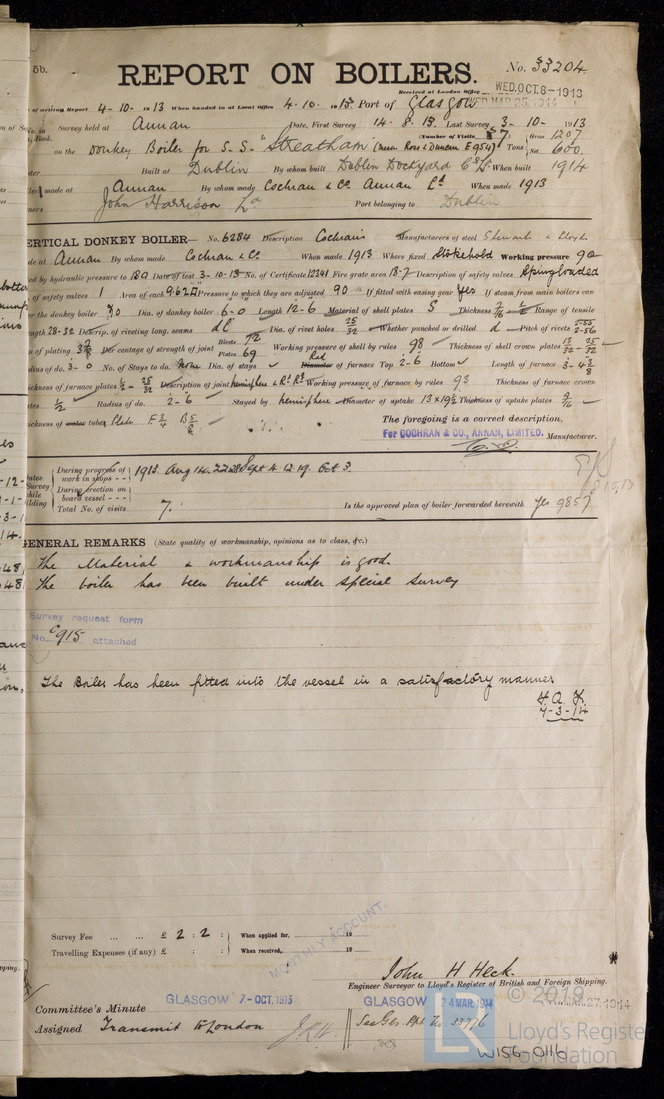 5b.
REPORT ON BOILERS.
No. 33204
Received at London Office WED. OCT. 8-1913
WED. MAR 25 1914
of writing Report 4-10-1913 When handed in at Local Office 4-10-1913 Port of Glasgow
Survey held at Annan Date, First Survey 14-8-13 Last Survey 3-10-1913
(Number of Visits 7) Gross 1207
on the Donkey Boiler for S.S. "Streatham" (Messrs Ross & Duncan E954) Tons Net 600
Built at Dublin By whom built Dublin Dockyard Co Ld When built 1914
made at Annan By whom made Cochran & Co. Annan Ld When made 1913
John Harrison Ld Port belonging to Dublin
VERTICAL DONKEY BOILER— No. 6284 Description Cochrans Manufacturers of steel Stewarts & Lloyds
at Annan By whom made Cochran & Co. When made 1913 Where fixed Stokehold Working pressure 90
by hydraulic pressure to 180 Date of test 3-10-13 No. of Certificate 12341 Fire grate area 18.7 Description of safety valves Spring loaded
of safety valves 1 Area of each 9.62 Pressure to which they are adjusted 90 If fitted with easing gear Yes If steam from main boilers can
the donkey boiler No Dia. of donkey boiler 6-0 Length 12-6 Material of shell plates S Thickness 7/16 1/2 Range of tensile
28-32 Descrip. of riveting long. seams dl Dia. of rivet holes 25/32 Whether punched or drilled d Pitch of rivets 2.56
of plating Per centage of strength of joint Rivets 72 Plates 69 Working pressure of shell by rules 98 Thickness of shell crown plates 13/32 - 25/32
Radius of do. 3-0 No. of Stays to do. None Dia. of stays ✓ Rad. Diameter of furnace Top 2-6 Bottom ✓ Length of furnace 3-4 3/8
Thickness of furnace plates 1/2 - 25/32 Description of joint hemisphere Working pressure of furnace by rules 93 Thickness of furnace crown
1/2 Radius of do. 2-6 Stayed by hemisphere Diameter of uptake 13 x 19 1/2 Thickness of uptake plates 9/16
Thickness of water tubes Plates F 3/4 B 5/8
The foregoing is a correct description,
For COCHRAN & CO., ANNAN, LIMITED. Manufacturer.
During progress of work in shops - - 1913. Aug 14. 22. 28 Sept 4. 12. 19. Oct 3.
During erection on board vessel - - -
Total No. of visits 7. Is the approved plan of boiler forwarded herewith Yes 9857
GENERAL REMARKS (State quality of workmanship, opinions as to class, &c.)
The Material & workmanship is good.
The boiler has been built under special survey
Survey request form
No. C915 attached
The Boiler has been fitted into the vessel in a satisfactory manner
4-3-14
Survey Fee ... ... £ 2 : 2 : When applied for, 19
Travelling Expenses (if any) £ : : When received, 19
MONTHLY ACCOUNT.
John H Heck.
Engineer Surveyor to Lloyd's Register of British and Foreign Shipping.
Committee's Minute GLASGOW 7-OCT. 1913 GLASGOW 24 MAR. 1914 MAR. 27. 1914
Assigned Transmit to London
See Gls. Rpt. No. 33776
© 2019
Lloyd's Register
Foundation
W156-0116